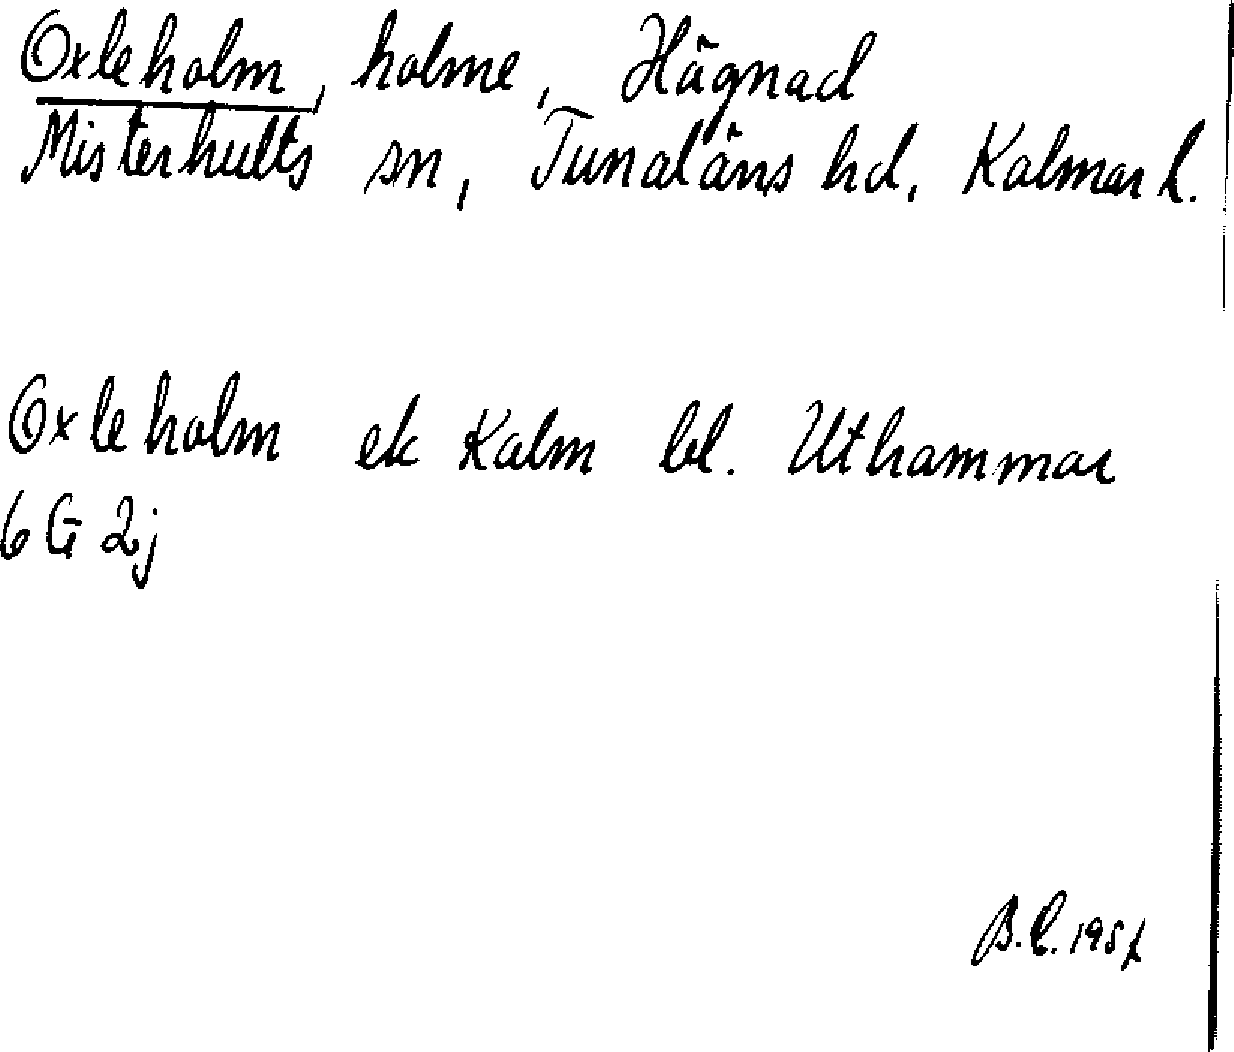 Oxleholm, holme, Hägnad
Misterhults sn, Tunaläns hd, Kalmar l.
Oxleholm ek Kalm bl. Uthammar
6 G 2j
B.L.